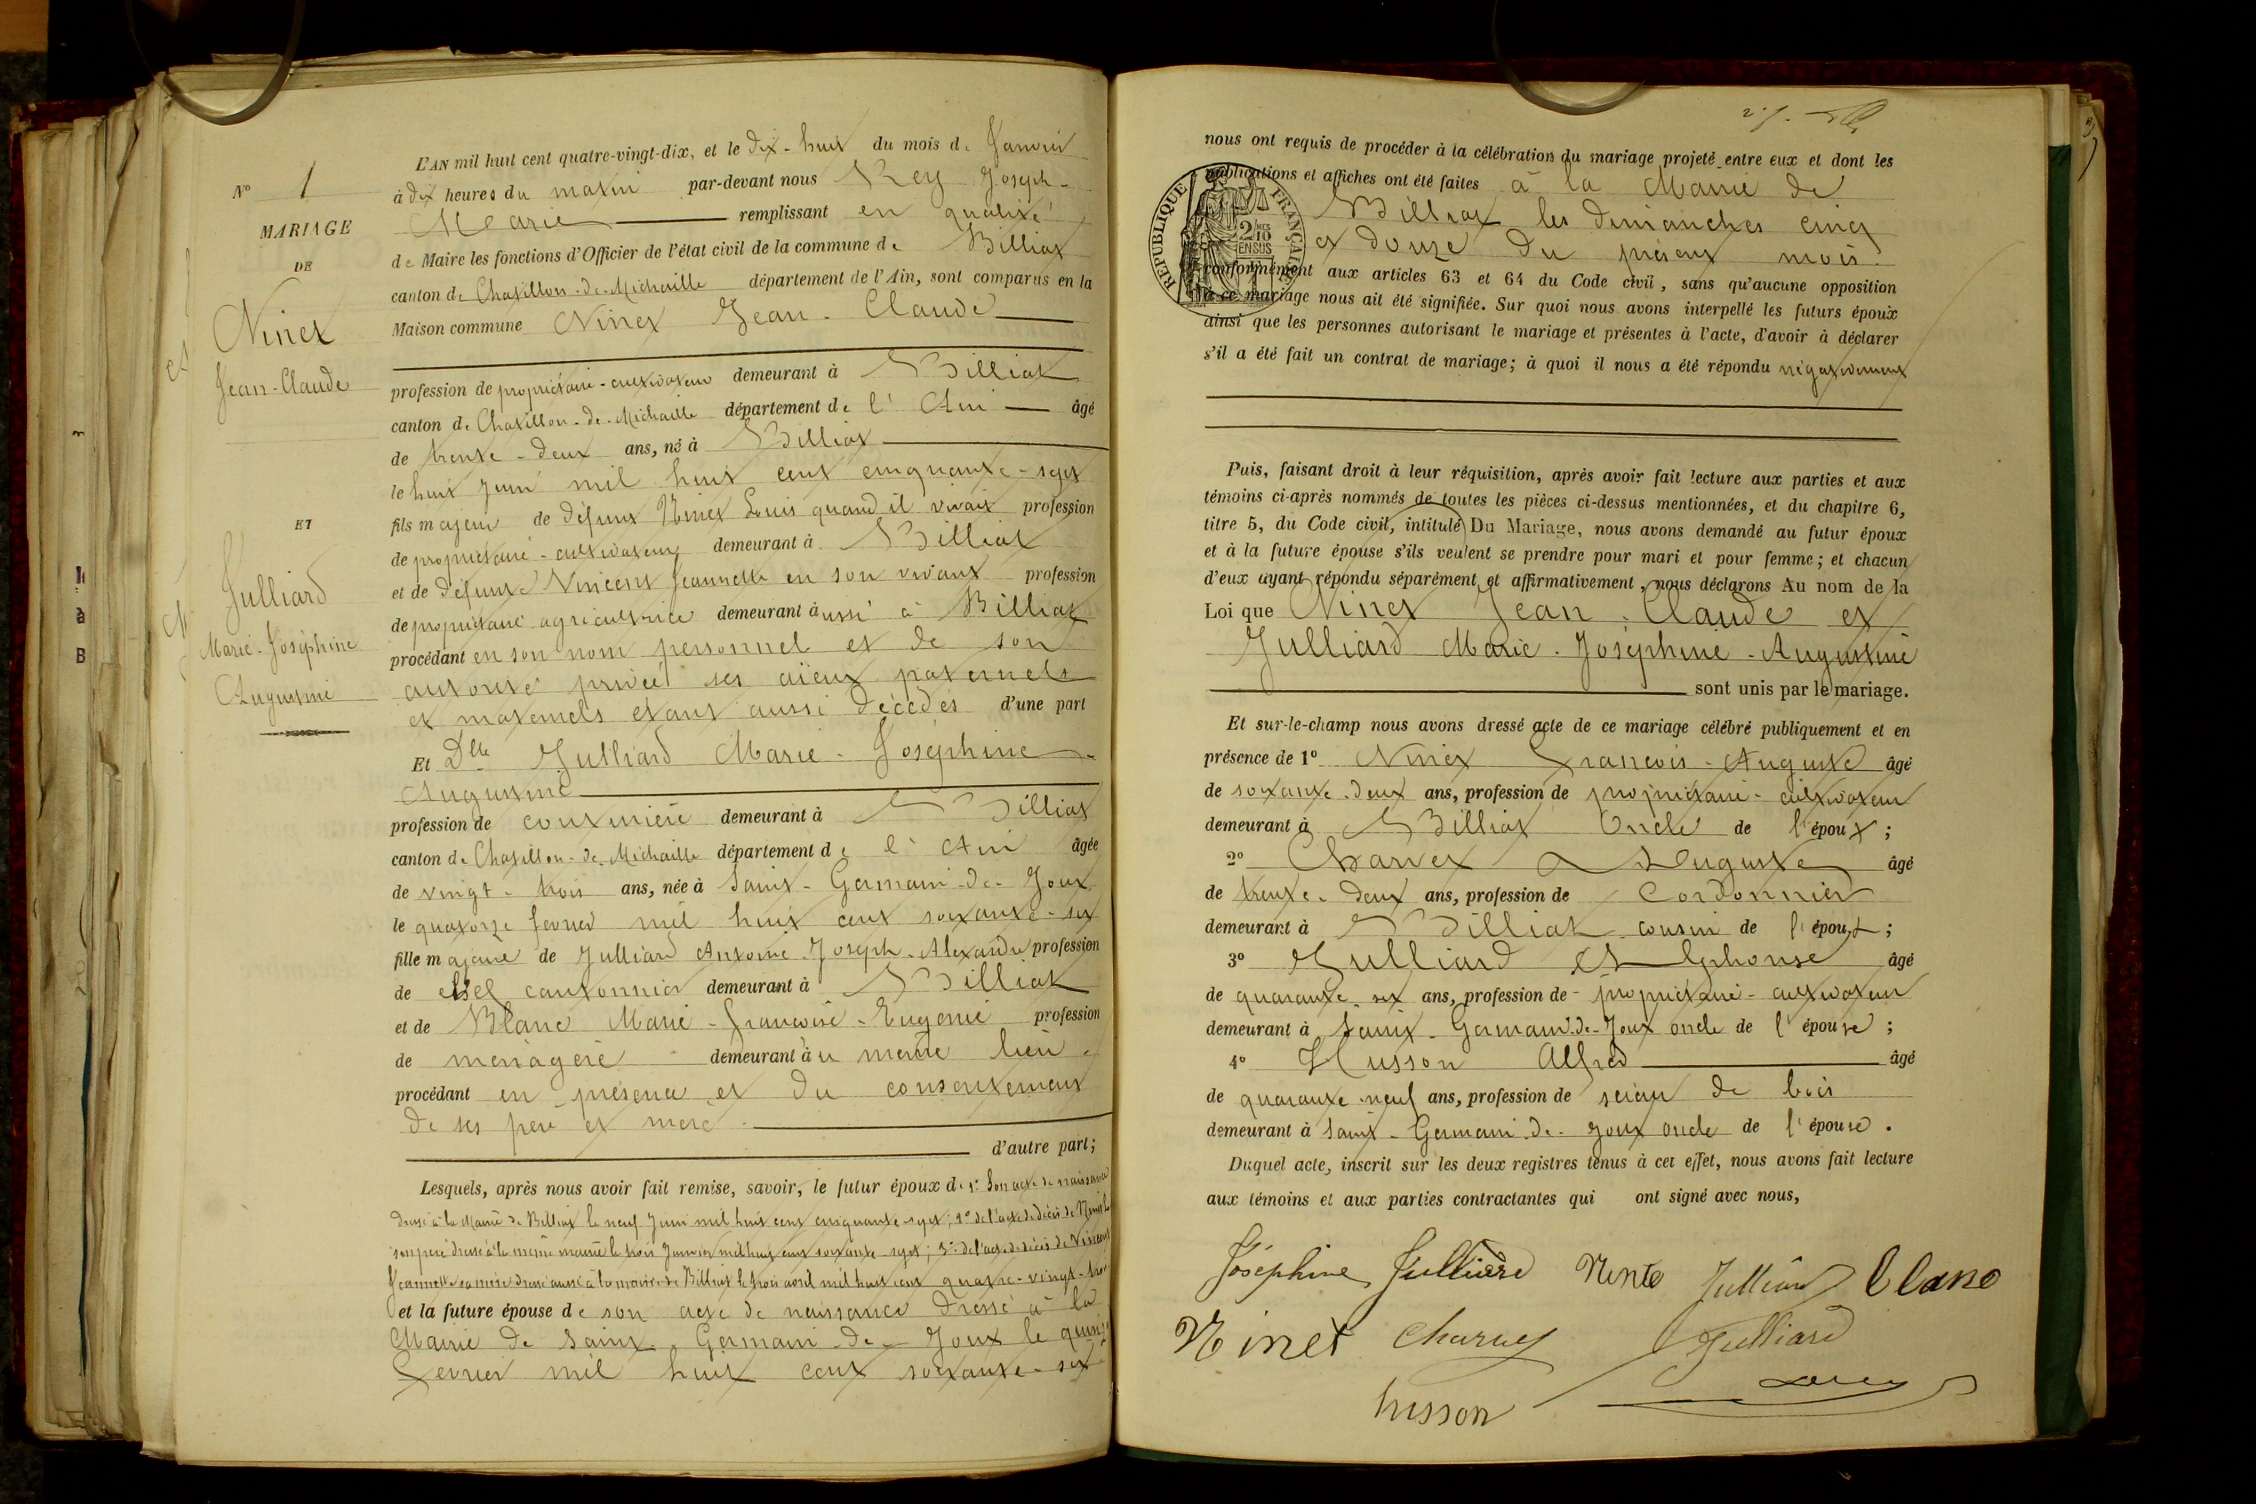 N° 1
MARIAGE
DE
Ninet
Jean-Claude
ET
Julliard
Marie-Joséphine
Augustine
L'AN mil huit cent quatre-vingt-dix, et le dix-huit du mois de Janvier
à dix heures du matin par-devant nous Rey Joseph-
Marie remplissant en qualité
de Maire les fonctions d'Officier de l'état civil de la commune de Billiat
canton de Chatillon-de-Michaille département de l'Ain, sont comparus en la
Maison commune Ninet Jean-Claude
profession de propriétaire-cultivateur demeurant à Billiat
canton de Chatillon-de-Michaille département de l'Ain âgé
de trente-deux ans, né à Billiat
le huit juin mil huit cent cinquante-sept
fils majeur de défunt Ninet Louis quand il vivait profession
de propriétaire-cultivateur demeurant à Billiat
et de défunte Vincent Jeannette en son vivant profession
de propriétaire agricultrice demeurant aussi à Billiat
procédant en son nom personnel et de son
autorité privée ses aïeux paternels
et maternels étant aussi décédés d'une part
Et Dlle Julliard Marie-Joséphine
Augustine
profession de couturière demeurant à Billiat
canton de Chatillon-de-Michaille département de l'Ain âgée
de vingt-trois ans, née à Saint-Germain-de-Joux
le quatorze février mil huit cent soixante-six
fille majeure de Julliard Antoine-Joseph-Alexandre profession
de chef cantonnier demeurant à Billiat
et de Blanc Marie-françoise-Eugénie profession
de ménagère demeurant au même lieu
procédant en présence et du consentement
de ses père et mère
d'autre part;
Lesquels, après nous avoir fait remise, savoir, le futur époux de 1° Son acte de naissance
dressé à la Mairie de Billiat le neuf Juin mil huit cent cinquante-sept; 2° de l'acte de décès de Ninet
son père dressé à la même mairie le trois Janvier mil huit cent soixante-sept; 3° de l'acte de décès de Vincent
Jeannette sa mère dressé aussi à la mairie de Billiat le trois avril mil huit cent quatre-vingt-trois
et la future épouse de son acte de naissance dressé à la
Mairie de Saint-Germain-de-Joux le quinze
février mil huit cent soixante-six
nous ont requis de procéder à la célébration du mariage projeté entre eux et dont les
publications et affiches ont été faites à la Mairie de
Billiat les dimanches cinq
et douze du présent mois
conformément aux articles 63 et 64 du Code civil, sans qu'aucune opposition
à ce mariage nous ait été signifiée. Sur quoi nous avons interpellé les futurs époux
ainsi que les personnes autorisant le mariage et présentes à l'acte, d'avoir à déclarer
s'il a été fait un contrat de mariage; à quoi il nous a été répondu négativement
RÉPUBLIQUE FRANÇAISE
2/10
EN SUS
Puis, faisant droit à leur réquisition, après avoir fait lecture aux parties et aux
témoins ci-après nommés de toutes les pièces ci-dessus mentionnées, et du chapitre 6,
titre 5, du Code civil, intitulé Du Mariage, nous avons demandé au futur époux
et à la future épouse s'ils veulent se prendre pour mari et pour femme; et chacun
d'eux ayant répondu séparément et affirmativement, nous déclarons Au nom de la
Loi que Ninet Jean-Claude et
Julliard Marie-Joséphine-Augustine
sont unis par le mariage.
Et sur-le-champ nous avons dressé acte de ce mariage célébré publiquement et en
présence de 1° Ninet François-Auguste âgé
de soixante-deux ans, profession de propriétaire-cultivateur
demeurant à Billiat Oncle de l'époux;
2° Charvet Auguste âgé
de trente-deux ans, profession de Cordonnier
demeurant à Billiat cousin de l'époux;
3° Julliard Alphonse âgé
de quarante-six ans, profession de propriétaire-cultivateur
demeurant à Saint-Germain-de-Joux oncle de l'épouse;
4° Husson Alfred âgé
de quarante-neuf ans, profession de scieur de bois
demeurant à Saint-Germain-de-Joux oncle de l'épouse.
Duquel acte, inscrit sur les deux registres tenus à cet effet, nous avons fait lecture
aux témoins et aux parties contractantes qui ont signé avec nous,
Joséphine Julliard Julliard blanc
Ninet Charvet Julliard
husson Rey